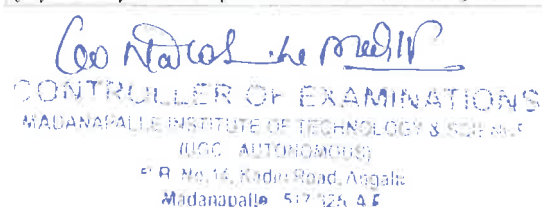 CONTROLLER OF EXAMINATIONS
MADANAPALLE INSTITUTE OF TECHNOLOGY & SCIENCE
(UGC AUTONOMOUS)
P.B. No.14, Kadiri Road, Angallu
Madanapalle 517 325, A.P.